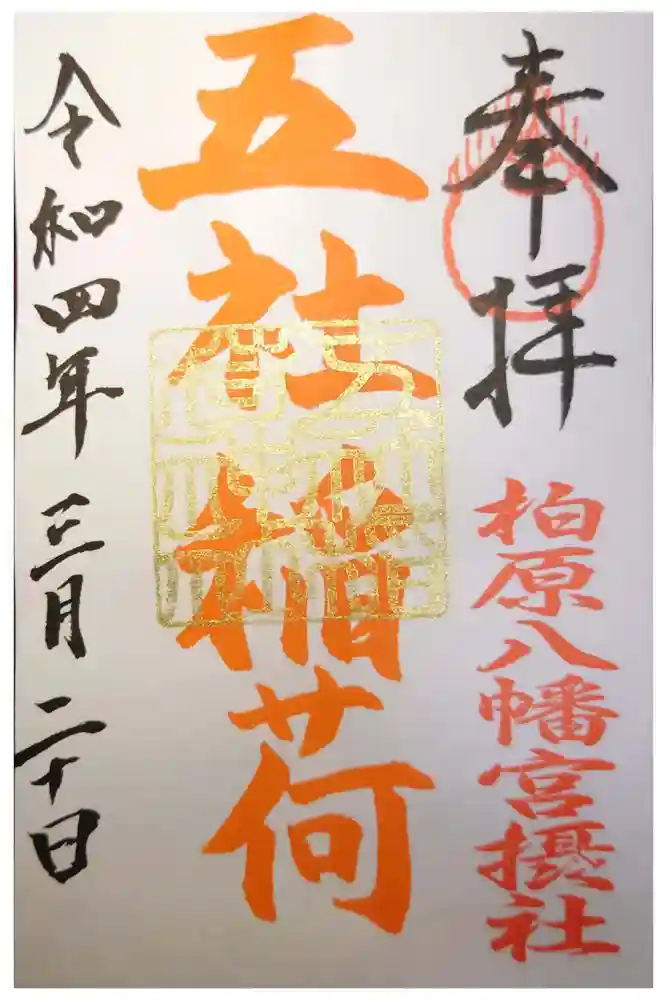 奉拝
柏原八幡宮摂社
五社稲荷
令和四年三月二十日